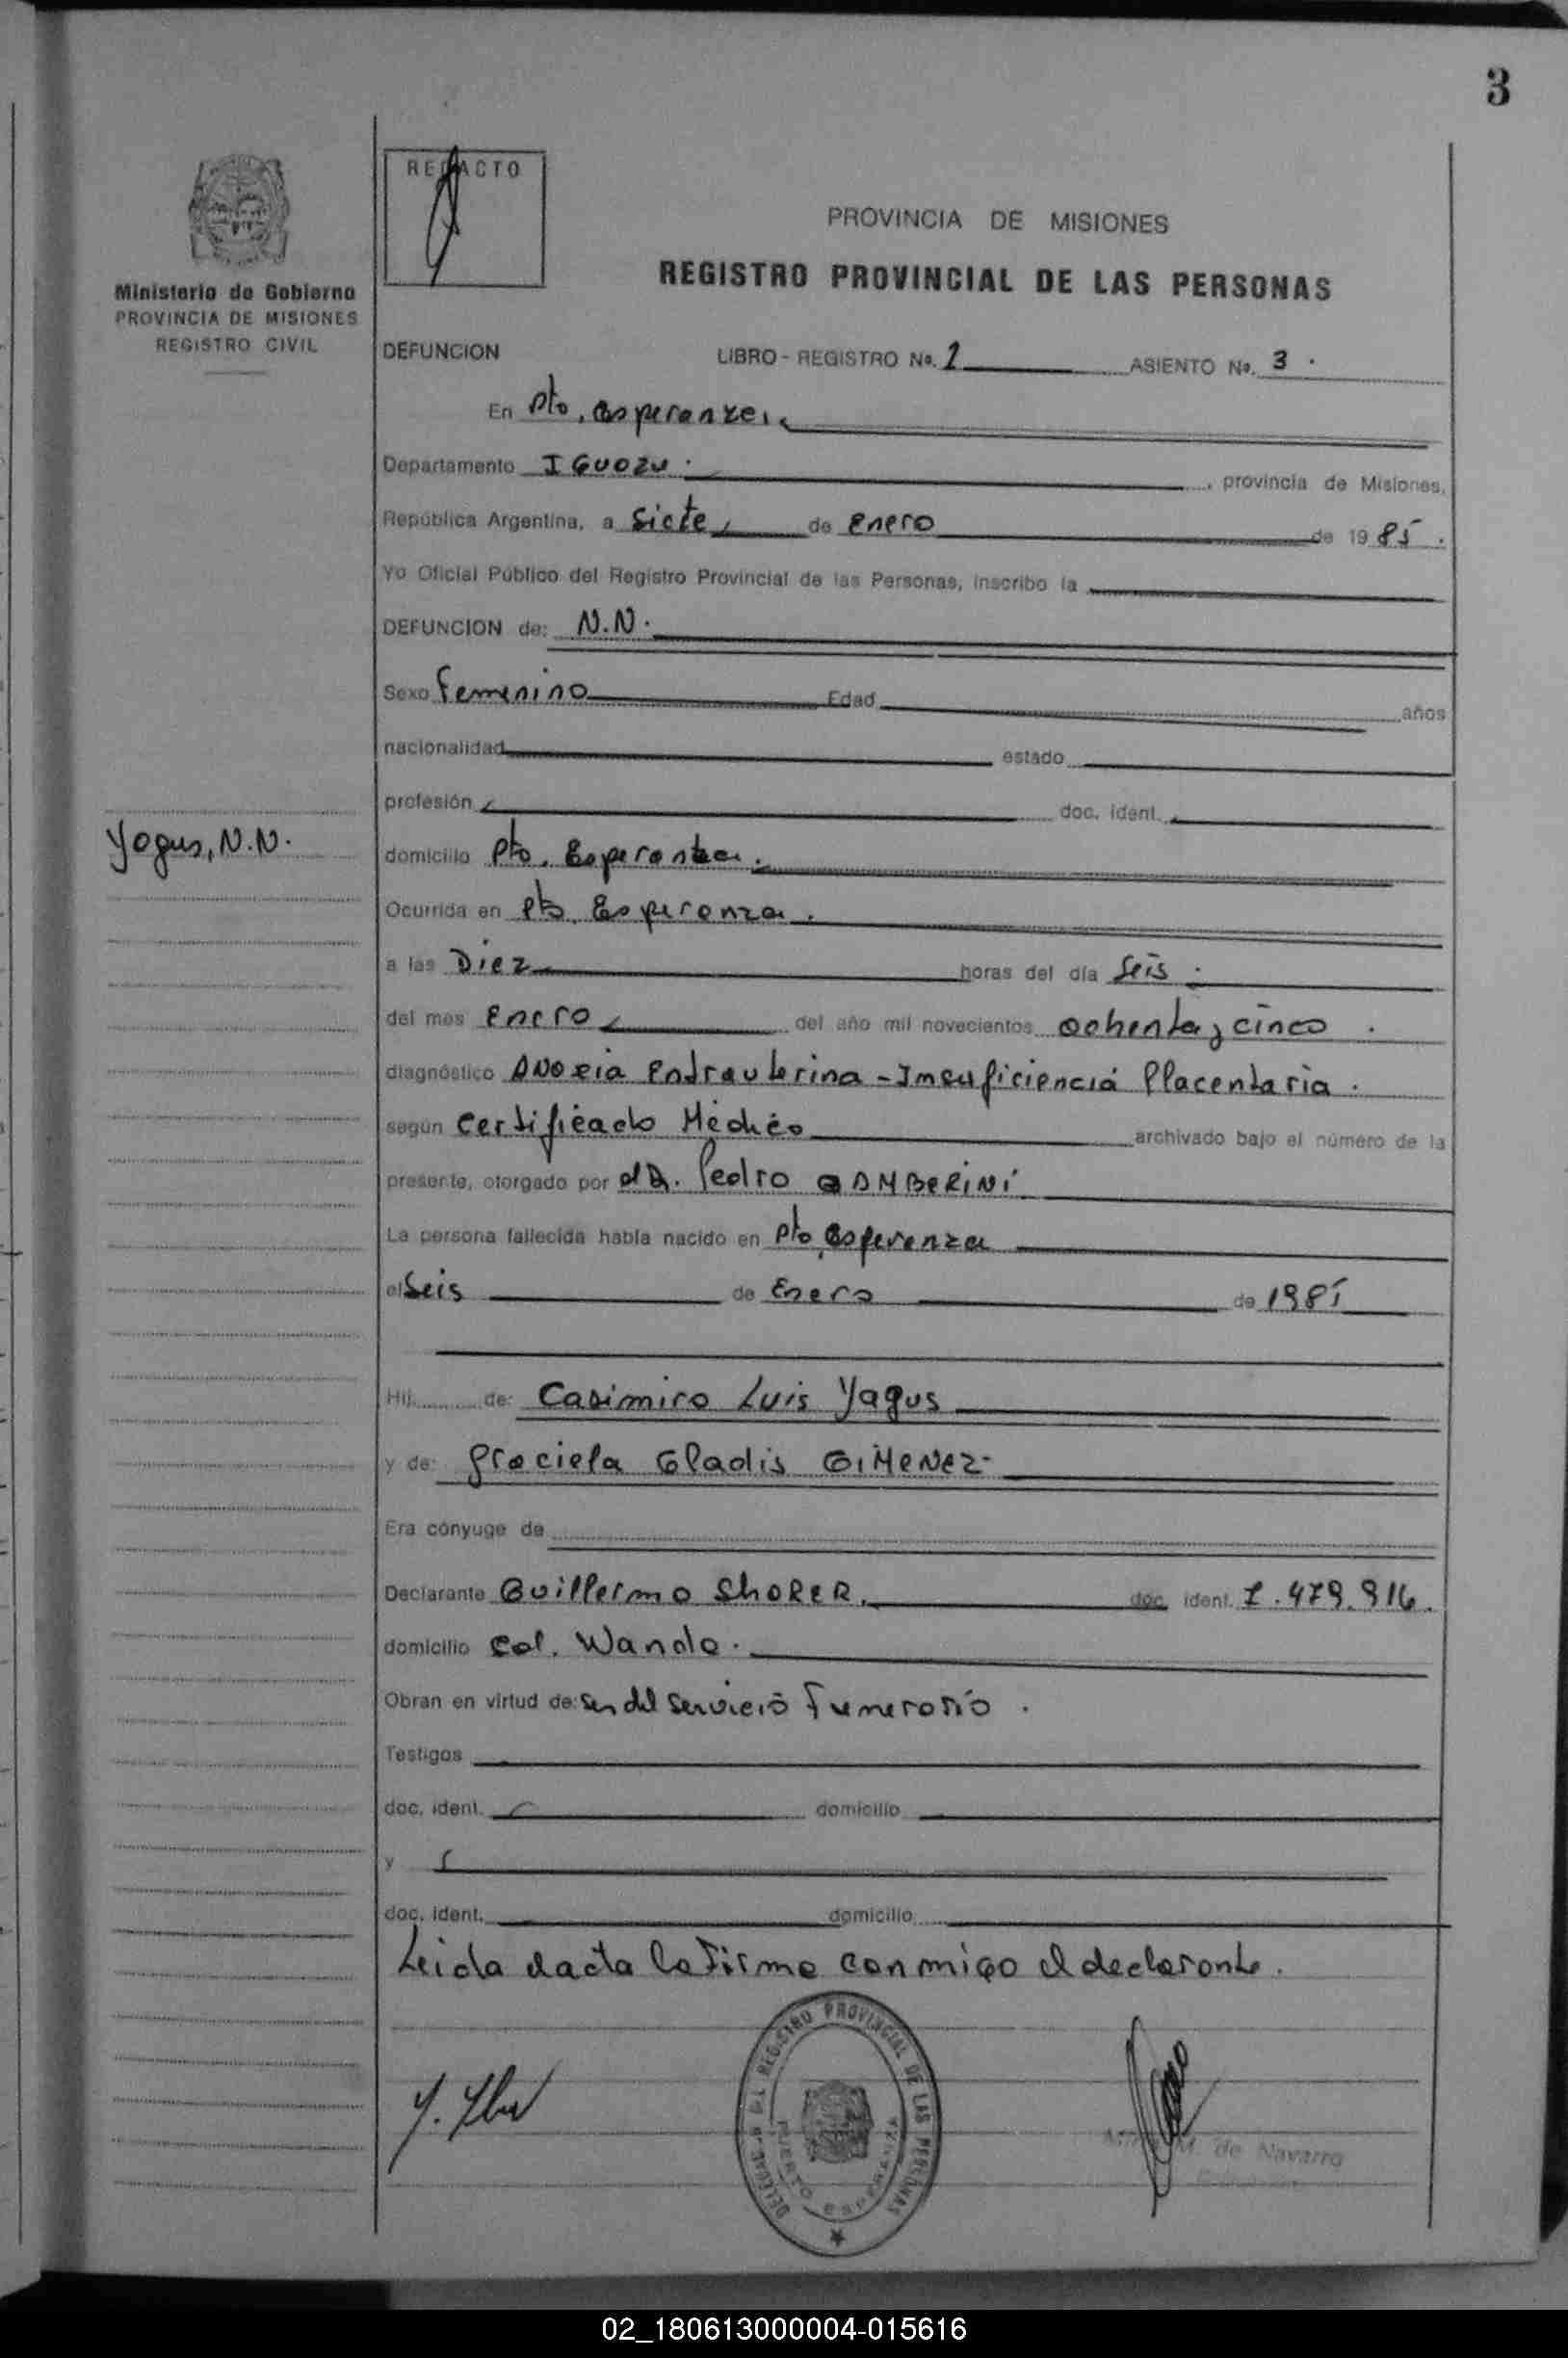 3
REDACTO
PROVINCIA DE MISIONES
REGISTRO PROVINCIAL DE LAS PERSONAS
Ministerio de Gobierno
PROVINCIA DE MISIONES
REGISTRO CIVIL
DEFUNCION LIBRO - REGISTRO No. 1 ASIENTO No. 3 .
En Pto. Esperanza
Departamento IGUAZU . , provincia de Misiones,
República Argentina, a Siete de Enero de 1985 .
Yo Oficial Público del Registro Provincial de las Personas, inscribo la
DEFUNCION de: N.N.
Sexo Femenino Edad años
nacionalidad estado
profesión doc. ident.
Yagus, N.N.
domicilio Pto. Esperanza .
Ocurrida en Pto. Esperanza .
a las Diez horas del día Seis .
del mes Enero del año mil novecientos ochenta y cinco .
diagnóstico ANOXIA Entrauterina - Insuficiencia Placentaria .
según Certificado Médico archivado bajo el número de la
presente, otorgado por el Dr. Pedro GAMBERINI
La persona fallecida había nacido en Pto Esperanza
el Seis de Enero de 1985
Hij de: Casimiro Luis Yagus
y de: Graciela Gladis GIMENEZ
Era cónyuge de
Declarante Guillermo ShoRER. doc. ident. 7.479.916.
domicilio Col. Wanda .
Obran en virtud de: Ser del servicio Funerario .
Testigos
doc. ident. domicilio
y
doc. ident. domicilio
Leida el acta la firma conmigo el declarante .
DELEGAC. N° DEL REGISTRO PROVINCIAL DE LAS PERSONAS
PUERTO ESPERANZA
M. de Navarro
02_180613000004-015616